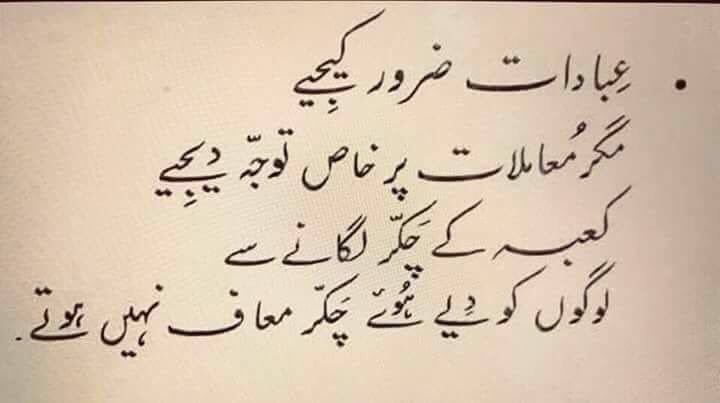 • عِبادات ضرور کیجیے
مگر مُعاملات پر خاص توجّہ دیجیے
کعبہ کے چَکّر لگانے سے
لوگوں کو دِیے ہُوئے چَکّر معاف نہیں ہوتے۔